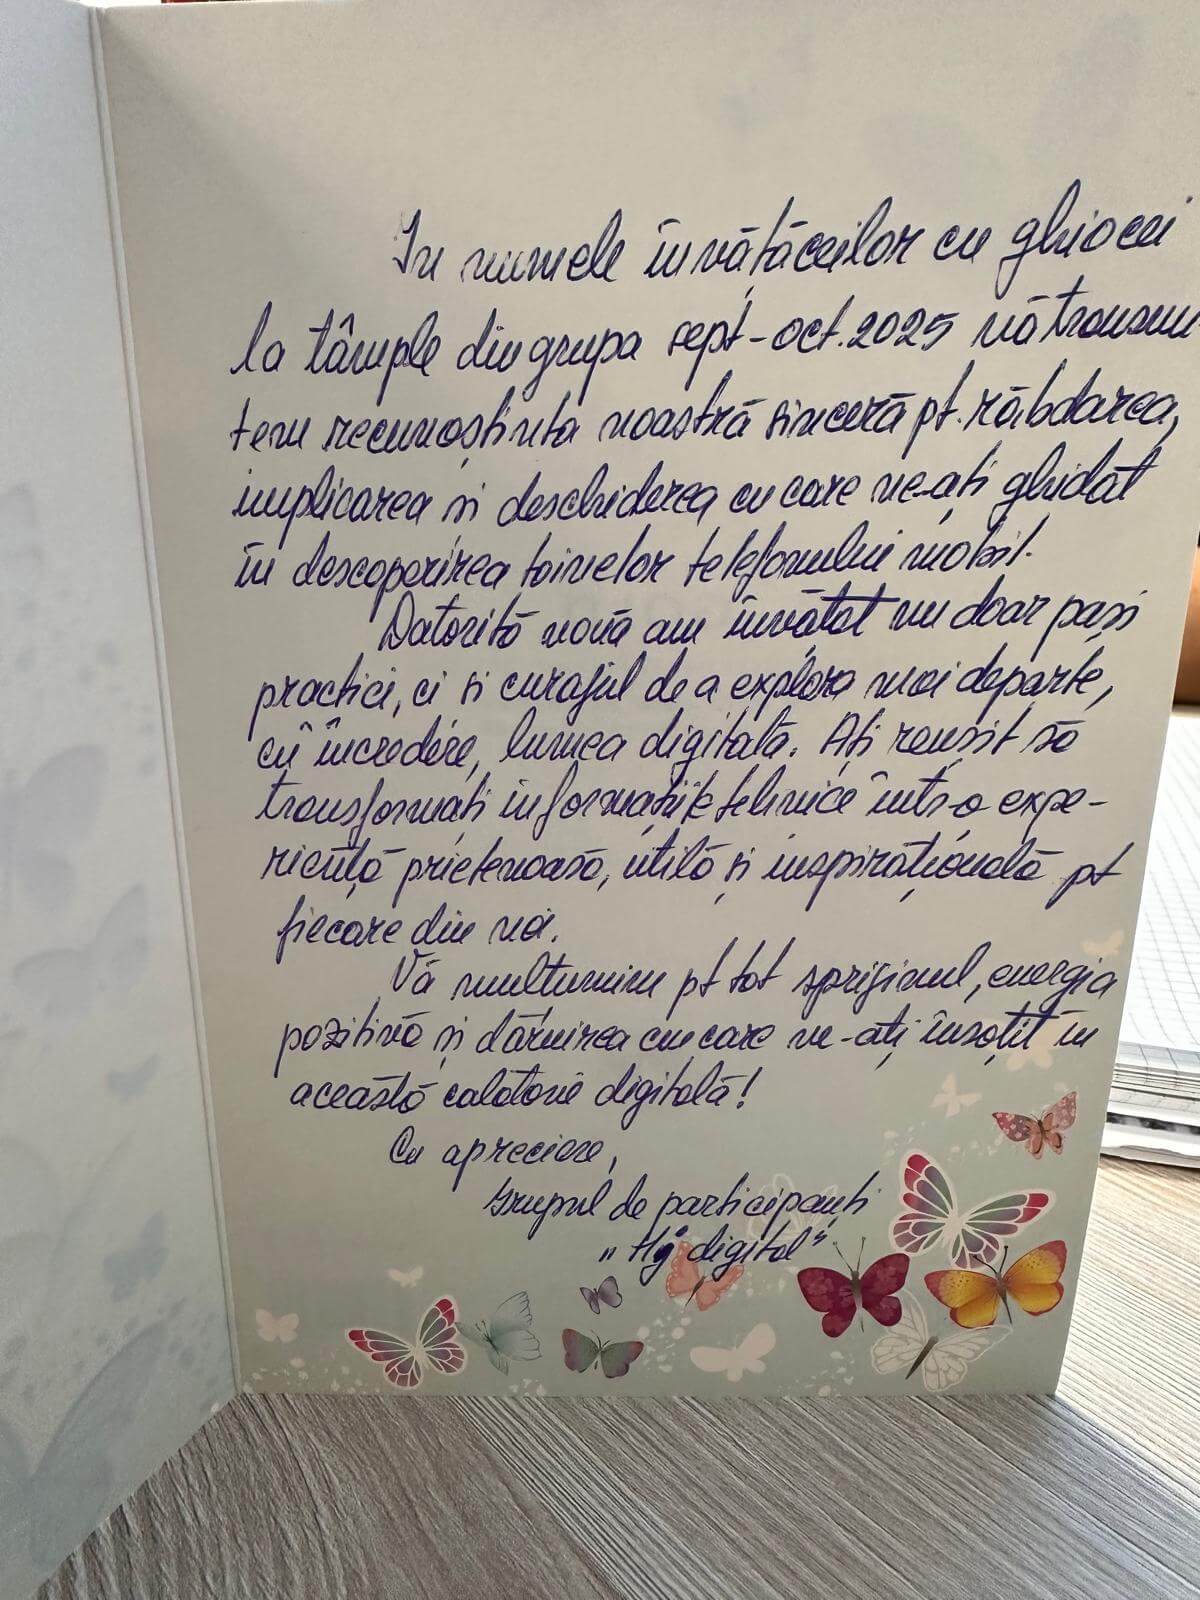 In numele învățăceilor cu ghiocei
la tâmple din grupa sept-oct. 2025 vă transmi
tem recunoștința noastră sinceră pt. răbdarea,
implicarea și deschiderea cu care ne-ați ghidat
în descoperirea tainelor telefonului mobil.
Datorită vouă am învățat nu doar pași
practici, ci și curajul de a explora mai departe,
cu încredere, lumea digitală. Ați reușit să
transformați informațiile tehnice într-o expe-
riență prietenoasă, utilă și inspirațională pt
fiecare din noi.
Vă mulțumim pt tot sprijinul, energia
pozitivă și dăruirea cu care ne-ați însoțit în
această călătorie digitală!
Cu apreciere,
Grupul de participanți
digital"